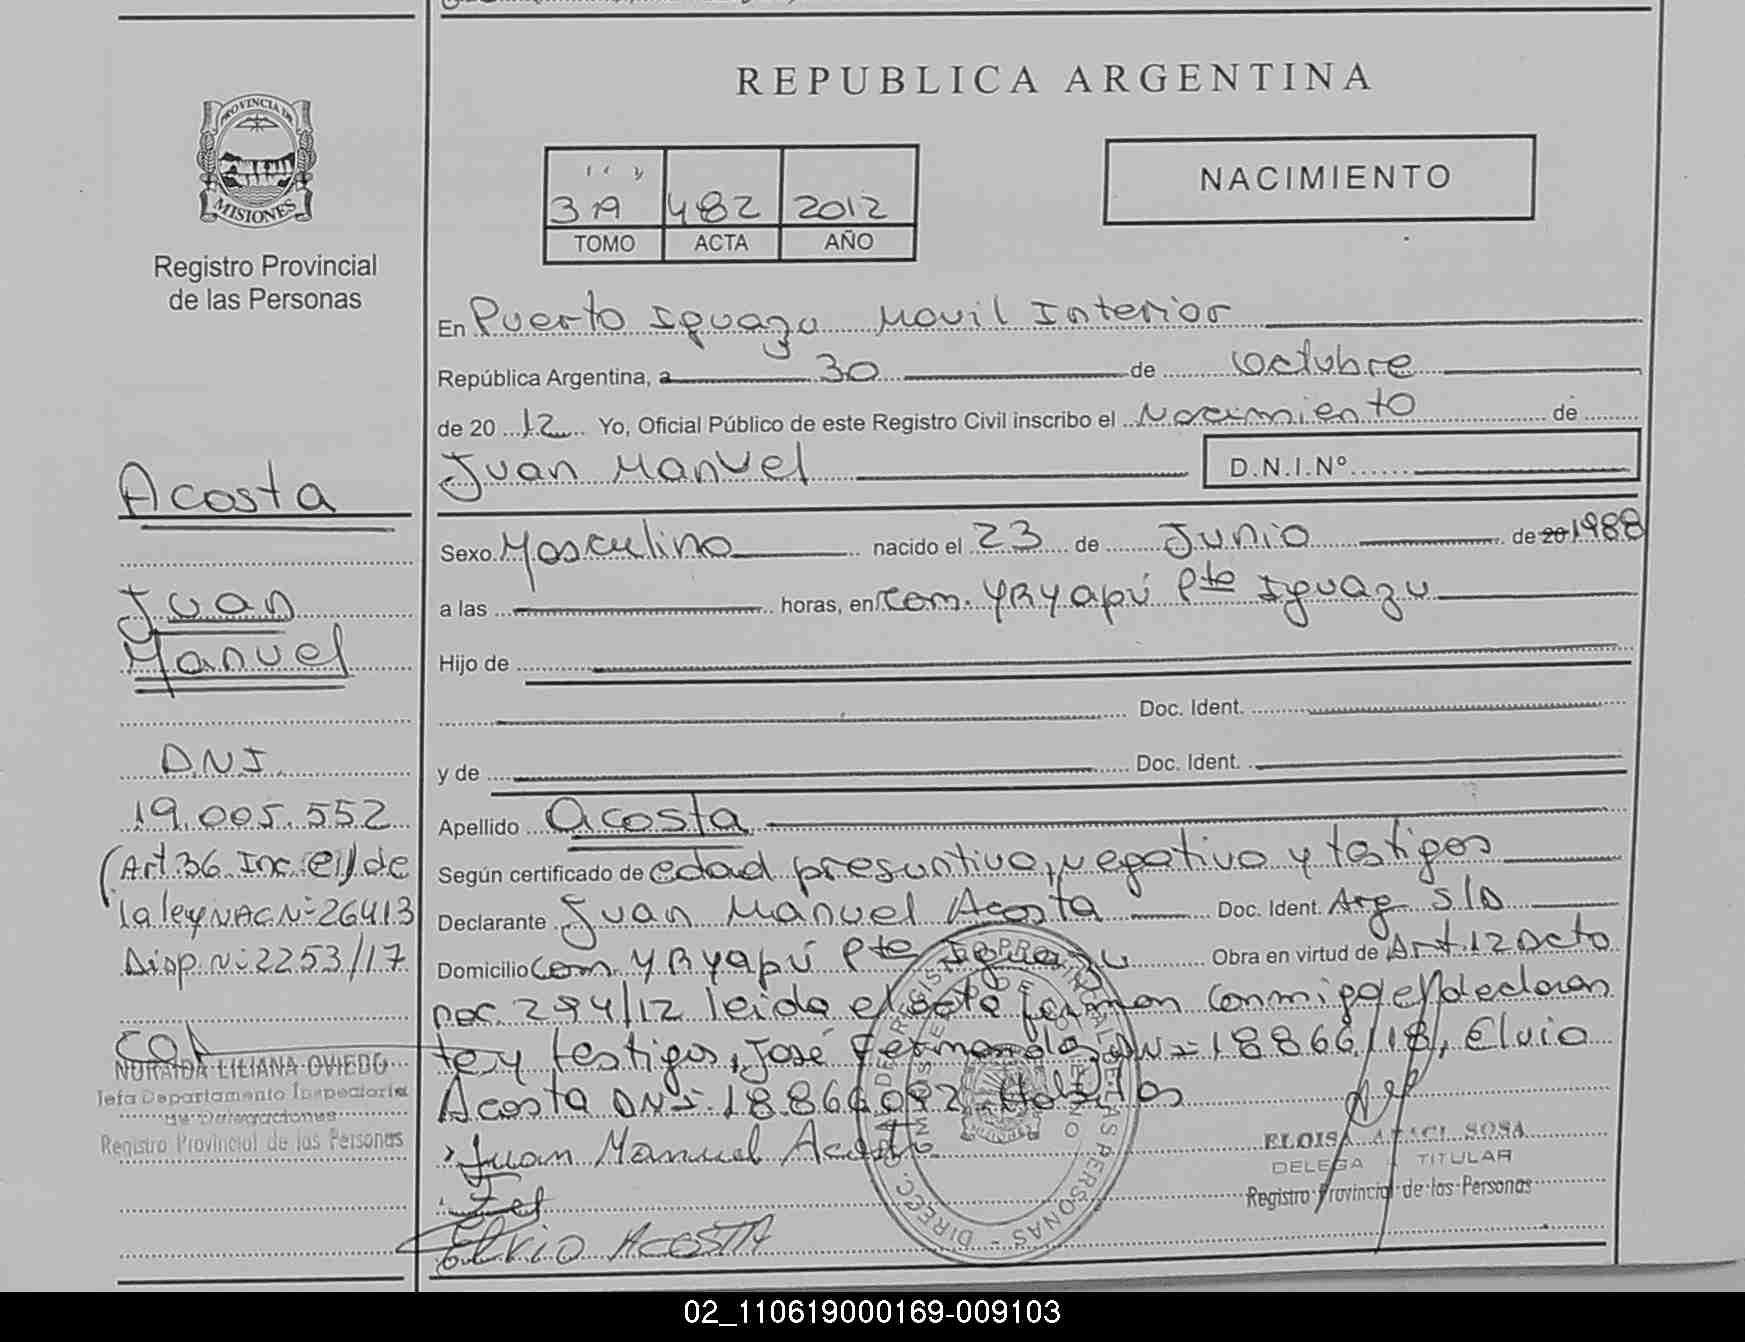 REPUBLICA ARGENTINA
PROVINCIA DE
MISIONES
Registro Provincial
de las Personas
NACIMIENTO
3 482 2012
TOMO ACTA AÑO
En Puerto Iguazu Movil Interior
República Argentina, a 30 de Octubre
de 20 12 Yo, Oficial Público de este Registro Civil inscribo el Nacimiento de
Juan Manuel D.N.I.Nº
Sexo Masculino nacido el 23 de Junio de 20 1988
a las horas, en Com. YRyapú Pto Iguazu
Hijo de
Doc. Ident.
y de Doc. Ident.
Apellido Acosta
Según certificado de edad presuntiva, negativo y testigos
Declarante Juan Manuel Acosta Doc. Ident. Arg S/D
Domicilio Com YRyapú Pto Iguazu Obra en virtud de Art. 12 Dcto
nac. 294/12 leida el acta firman conmigo el declaran
te y testigos, José Fernandez DNI= 18866118, Elvio
Acosta DNI. 18.866.092. Habiles
Juan Manuel Acosta
Elvio Acosta
ELOISA SOSA
DELEGA TITULAR
Registro Provincial de las Personas
Acosta
Juan
Manuel
D.N.I.
19.005.552
(Art.36 Inc. e) de
la ley NAC.Nº 26413
Disp.Nº 2253/17
NURAIDA LILIANA OVIEDO
Jefa Departamento Inspectoria
de Delegaciones
Registro Provincial de las Personas
02_110619000169-009103